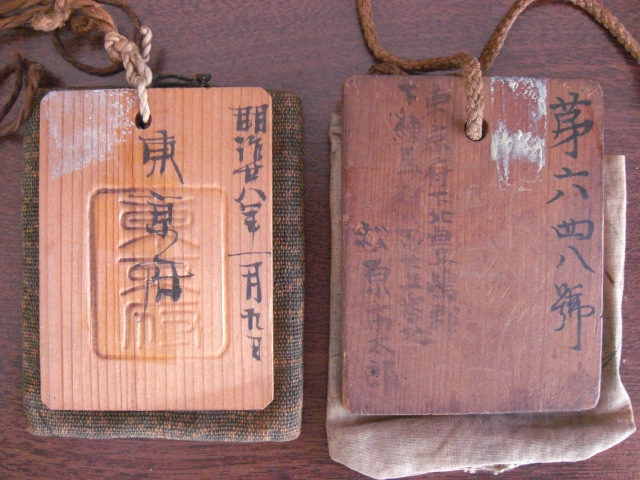 明治廿八年一月九日
東京府
東京府
第六四八號
東京府下北豊島郡
下練馬村 番地
松原市太郎